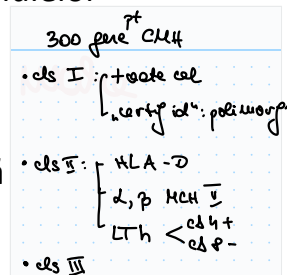 300 gene pt CMH
• cls I : - toate cel
- "certif id": polimorf
• cls II : - HLA-D
- α, β MCH II
- LTh < cd 4 +
cd 8 -
• cls III